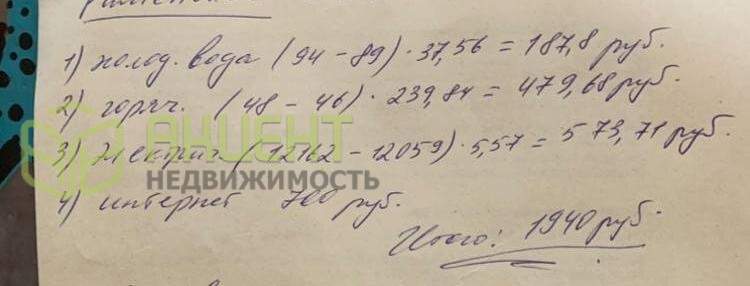 1) холод. вода (94 - 89) · 37,56 = 187,8 руб.
2) горяч. (48 - 46) · 239,84 = 479,68 руб.
АКЦЕНТ
3) электрич. (12162 - 12059) · 5,57 = 573,71 руб.
НЕДВИЖИМОСТЬ
4) интернет 700 руб.
Итого: 1940 руб.